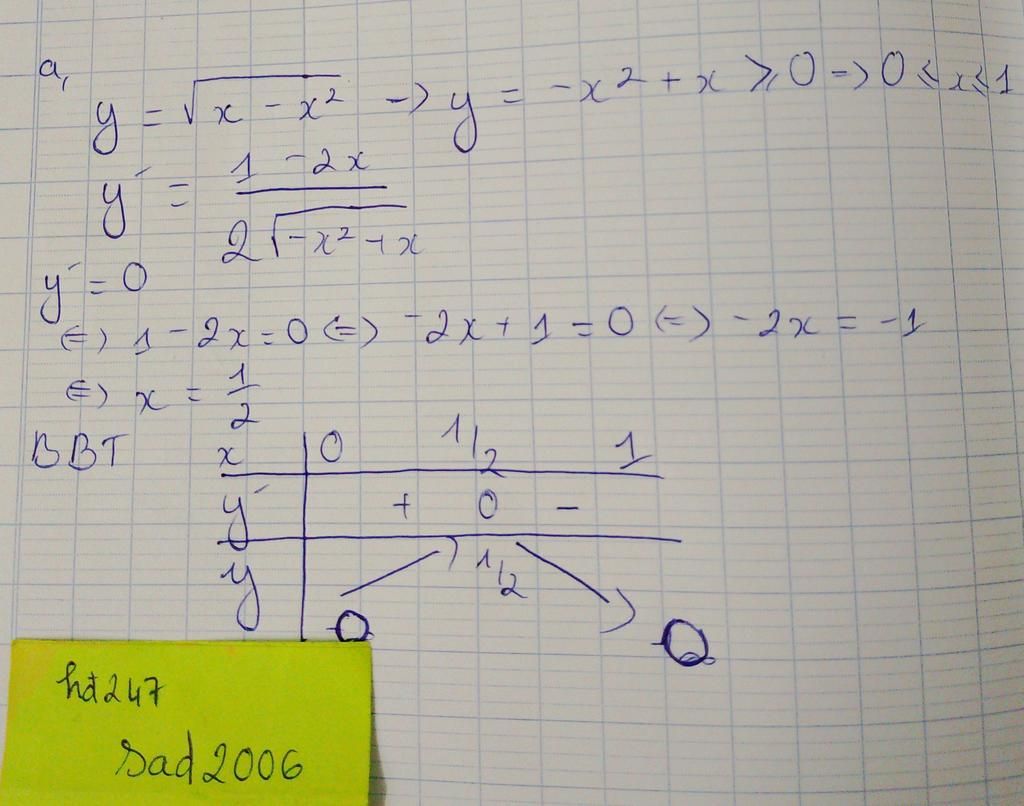 a,
y = √(x - x²) -> y = -x² + x ⩾ 0 -> 0 ≤ x ≤ 1
y' = (1 - 2x) / (2√(-x² + x))
y' = 0
⇔ 1 - 2x = 0 ⇔ -2x + 1 = 0 ⇔ -2x = -1
⇔ x = 1/2
BBT x | 0 1/2 1
y' | + 0 -
y | 0 ↗ 1/2 ↘ 0
hdt247
sad2006